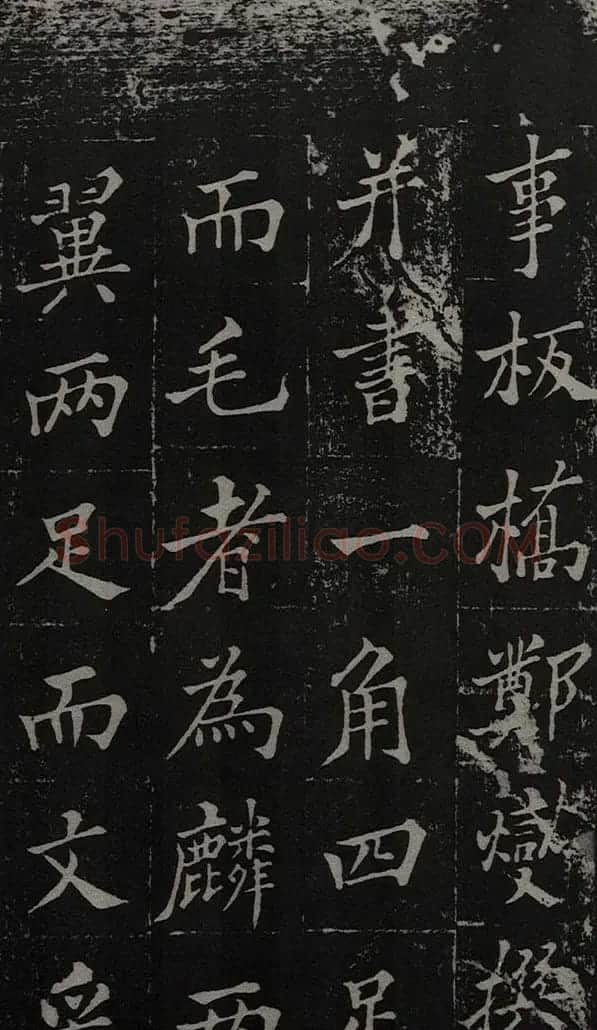 事板橋鄭燮撰
并書一角四足
而毛者為麟兩
翼两足而文
Shufaziliao.COM